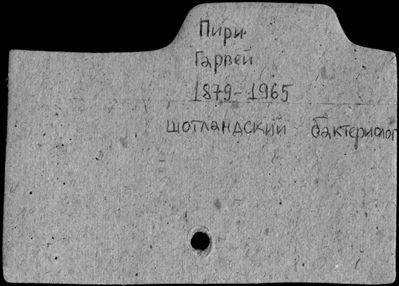 Пири
Гарвей
1879-1965
шотландский бактериолог